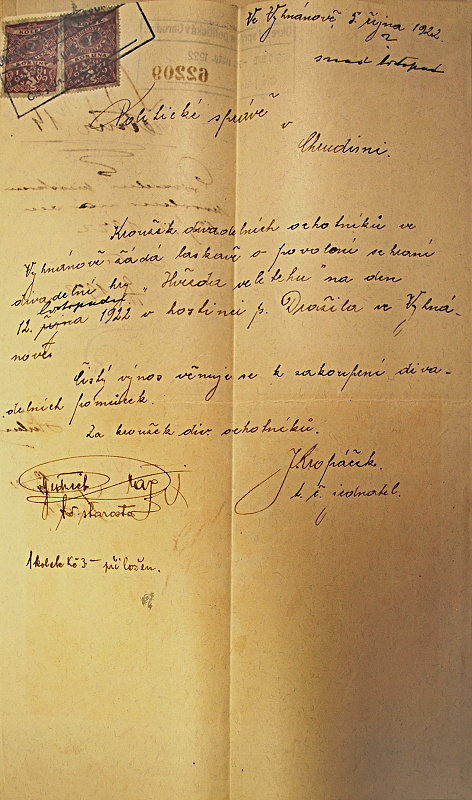 Ve Vyhnánově, 5. října 1922.
snad listopad
62209
Politické správě
v
Chrudimi.
Kroužek divadelních ochotníků ve
Vyhnánově žádá laskavě o povolení sehrání
divadelní hry „Hvězda veletehu" na den
listopadu
12. října 1922 v hostinci p. Drašila ve Vyhná-
nově.
Čistý výnos věnuje se k zakoupení diva-
delních pomůcek.
Za kroužek div. ochotníků.
J. Kropáček
t. č. jednatel.
starosta
1 kolek Kč 3— přiložen.